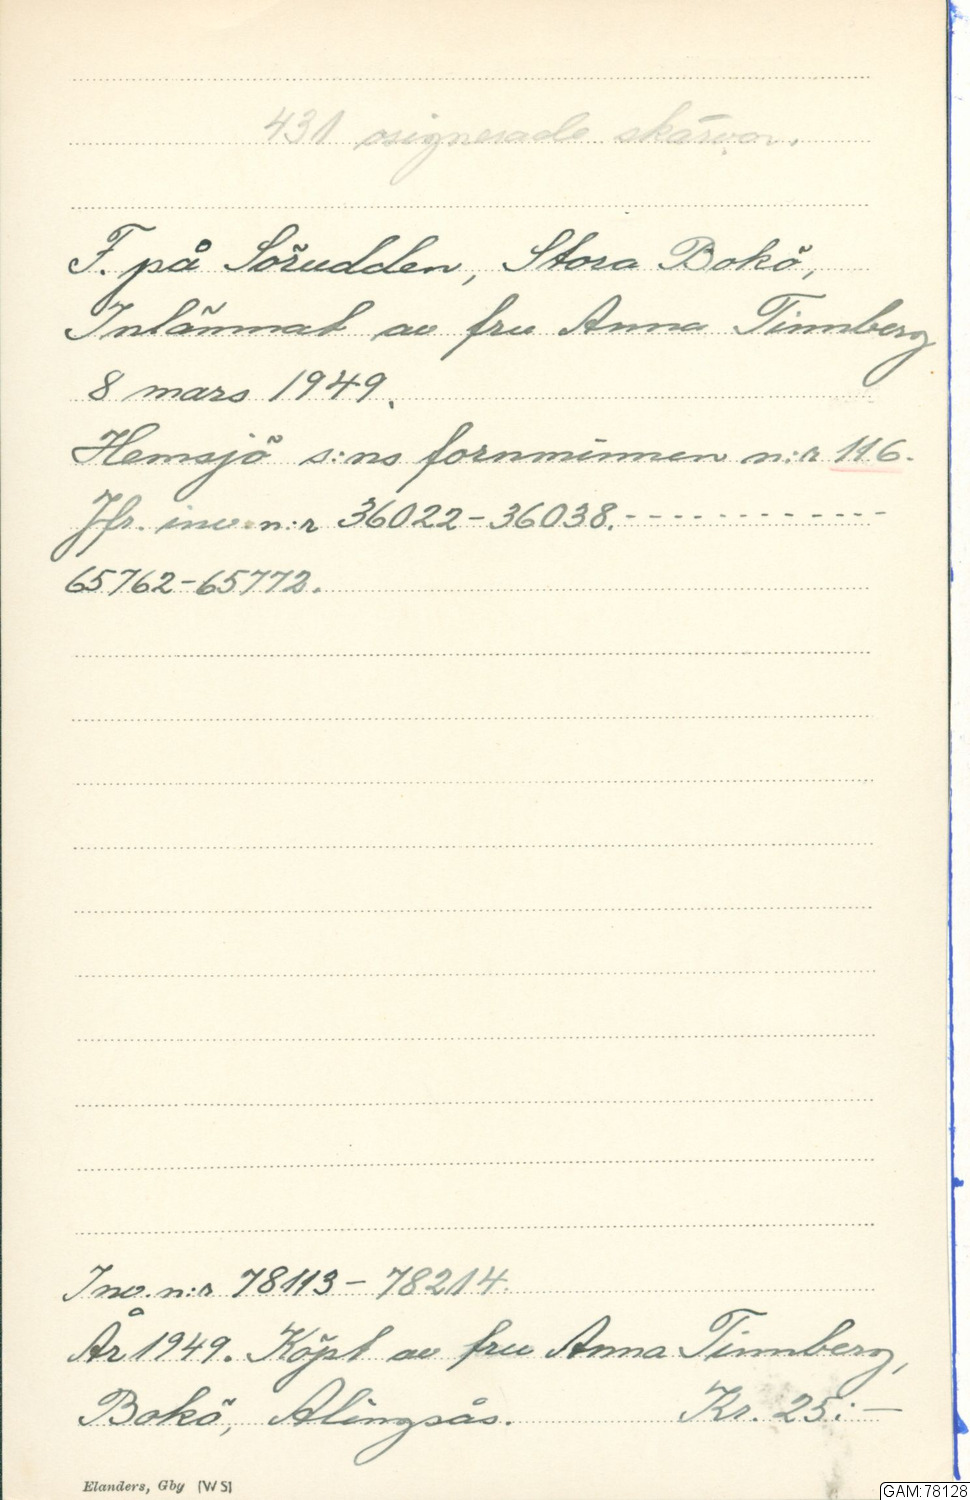 431 osignerade skärvor.
F. på Sörudden, Stora Bokö,
Inlämnat av fru Anna Timnberg
8 mars 1949.
Hemsjö s:ns fornminnen n:r 116.
Jfr. inv. n:r 36022-36038.-----------
65762-65772.
Inv. n:r 78113-78214.
År 1949. Köpt av fru Anna Timnberg,
Bokö, Alingsås. Kr. 25:-
Elanders, Gby (WS)
GAM:78128